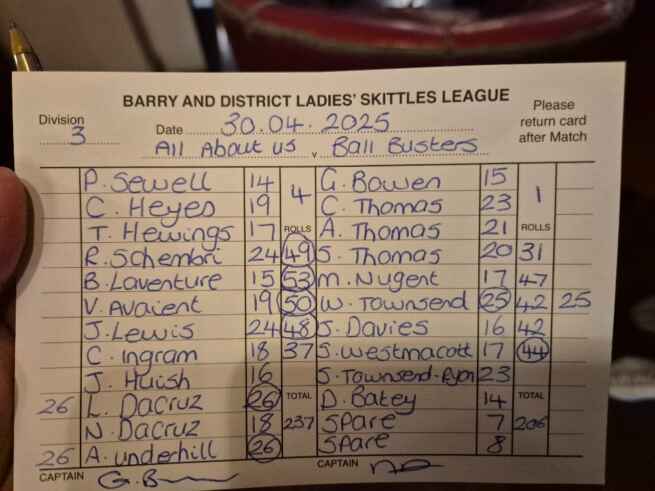 BARRY AND DISTRICT LADIES' SKITTLES LEAGUE
Please return card after Match
Division 3
Date 30.04.2025
All About us v Ball Busters
P. Sewell 14 4 G. Bowen 15 1
C. Heyes 19 C. Thomas 23
T. Hewings 17 ROLLS A. Thomas 21 ROLLS
R. Schembri 24 49 S. Thomas 20 31
B. Laventure 15 53 M. Nugent 17 47
V. Avaient 19 50 W. Townsend 25 42 25
J. Lewis 24 48 J. Davies 16 42
C. Ingram 18 37 S. Westmacott 17 44
J. Huish 16 S. Townsend-Ryan 23
26 L. Dacruz 26 TOTAL D. Batey 14 TOTAL
N. Dacruz 18 237 Spare 7 206
26 A. Underhill 26 Spare 8
CAPTAIN G.B CAPTAIN